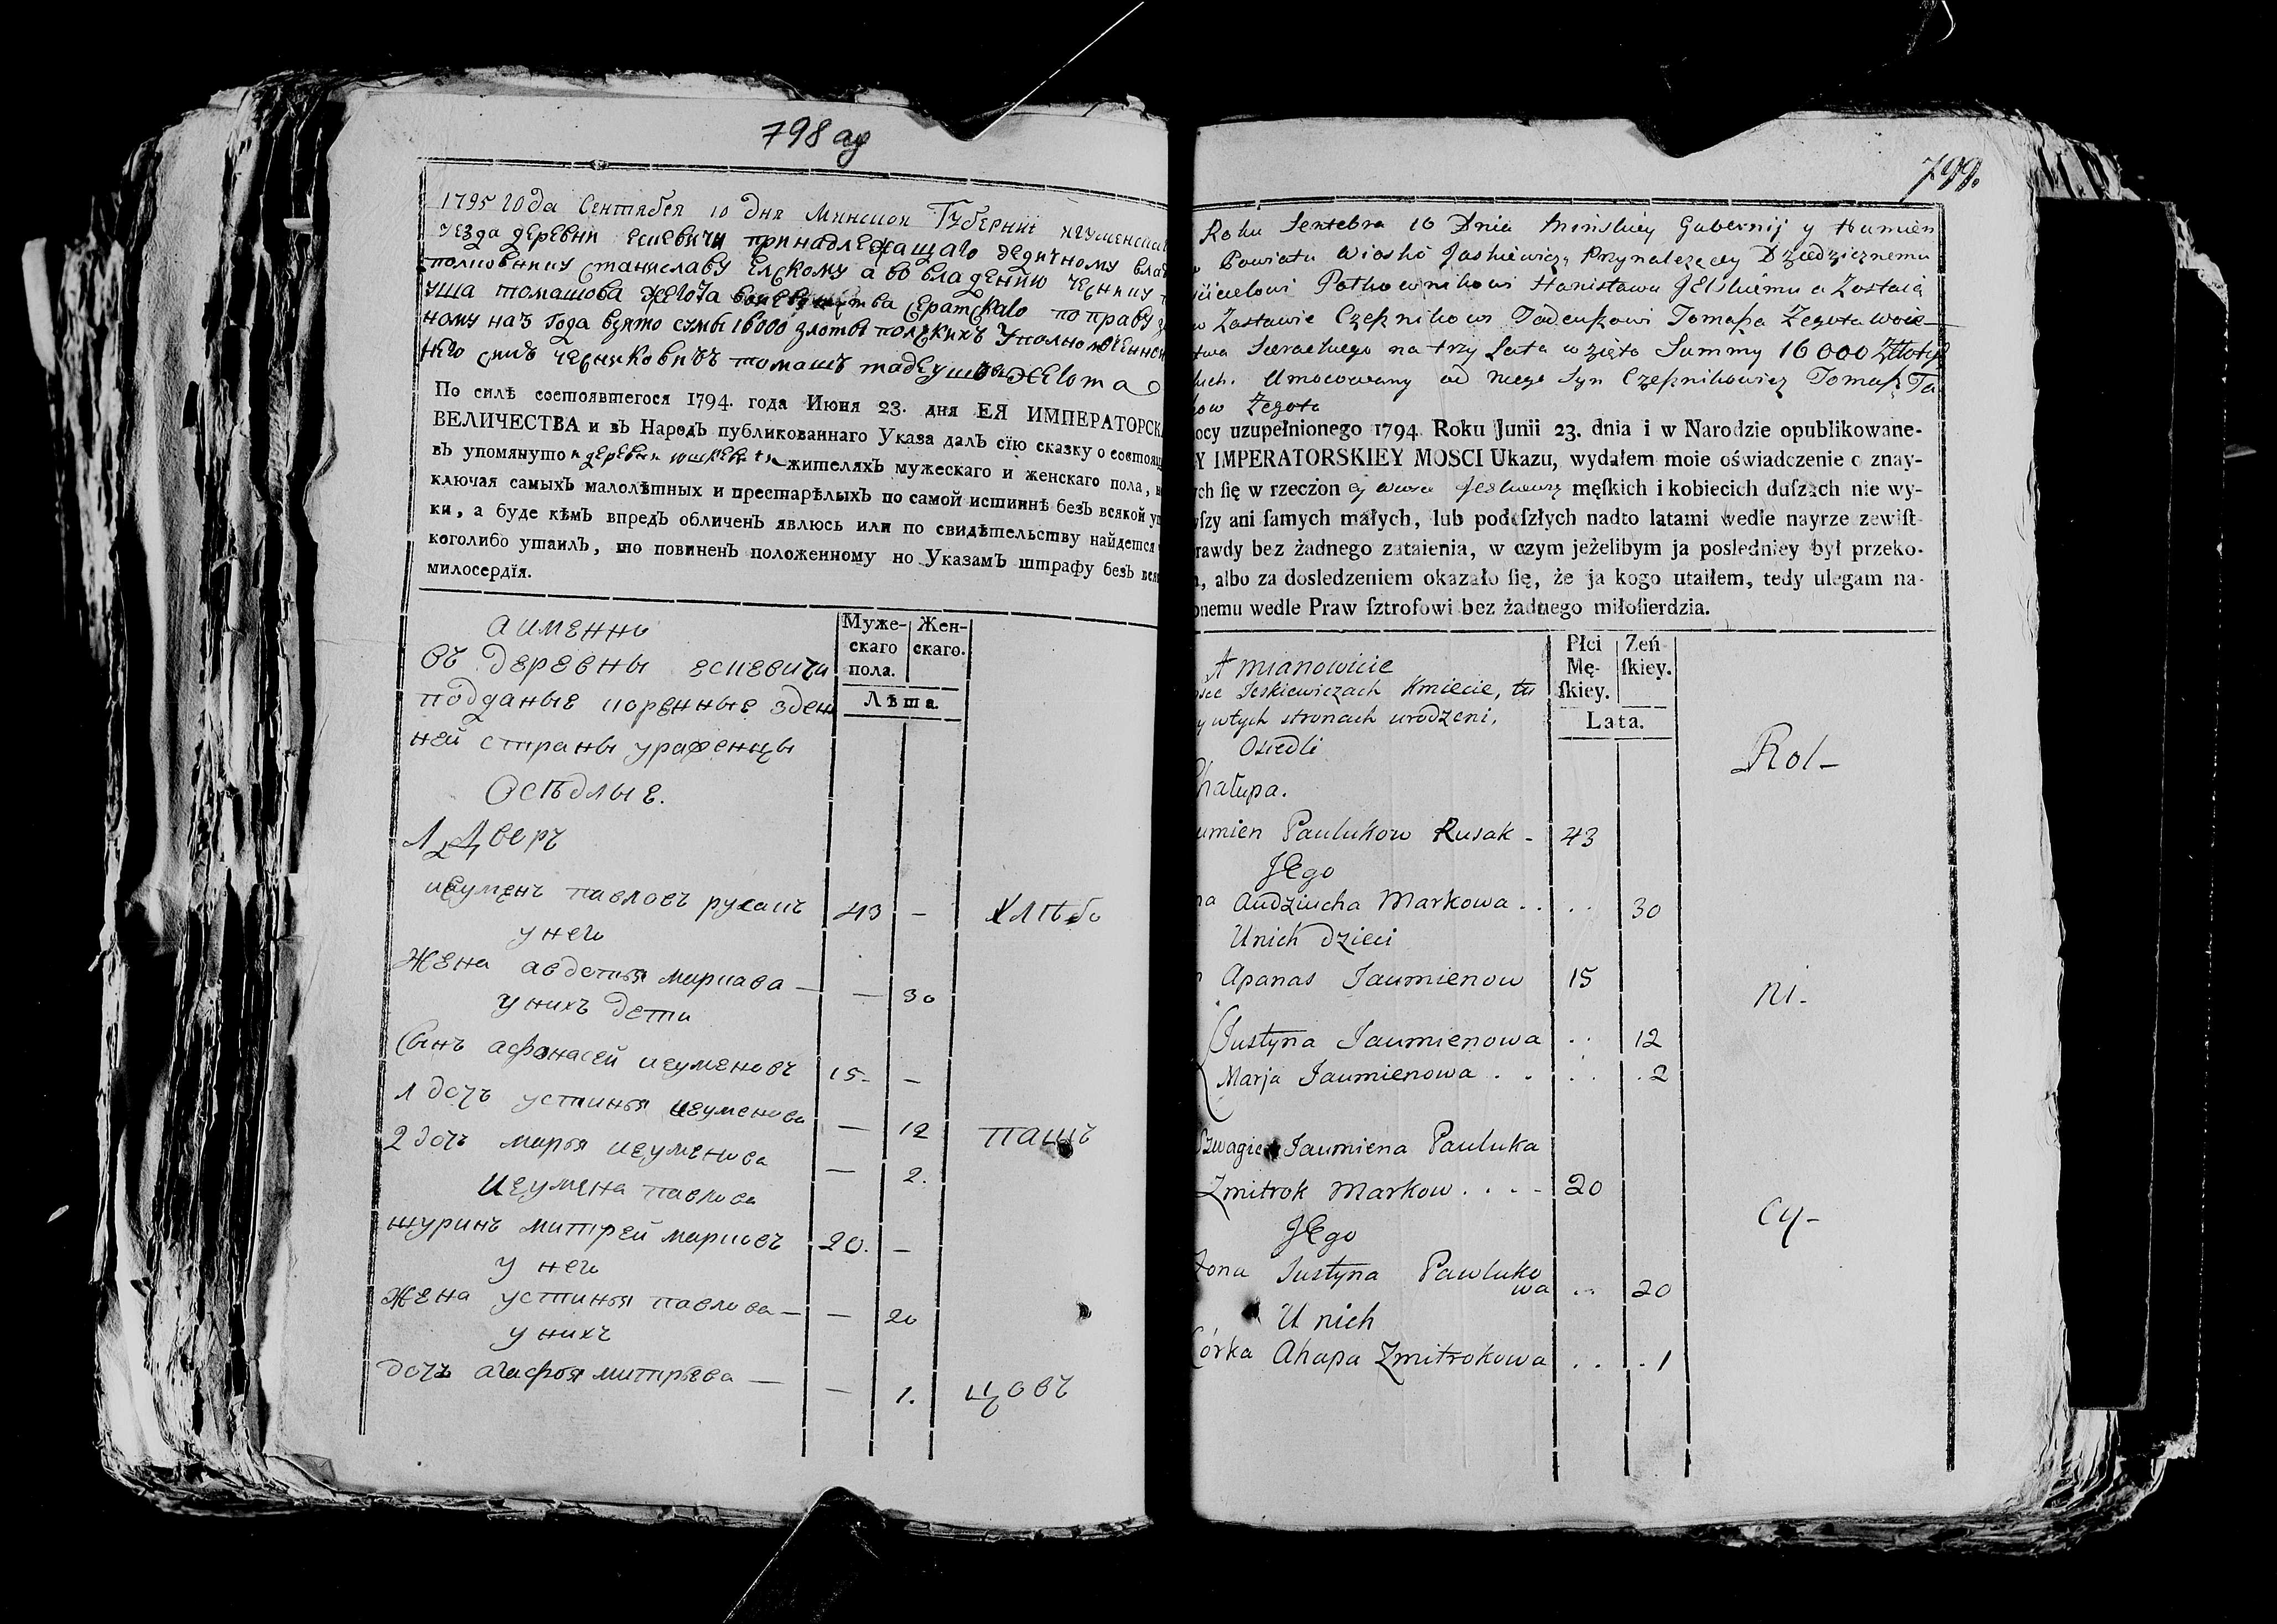 798 ад
1795 года Сентября 10 дня Минской Губерніи игуменска
уезда деревни есневичи принадлежащаго дедичному вла
полковнику станиславу Елскому а во владению чеснику
уша томашова жегота ства сератскаго по праву
ному на 3 года взято сумы 16000 злоты полскихъ Уполномоченно
него сынъ чесниковичъ томашъ тадеушовъ жегота
По силѣ состоявшегося 1794. года Июня 23. дня ЕЯ ИМПЕРАТОРСК
ВЕЛИЧЕСТВА и въ НародЪ публикованнаго Указа далЪ сїю сказку о состоящ
въ упомянуто й деревни жителяхЪ мужескаго и женскаго пола,
ключая самыхЪ малолѣтныхъ и престарѣлыхЪ по самой истиннѣ безЪ всякой ут
ки, а буде кѣмЪ впредЪ обличенЪ явлюсь или по свидѣтельству найдется
коголибо утаилЪ, то повиненЪ положенному по УказамЪ штрафу безЪ вся
милосердїя.
аименно
въ деревны есневичи
подданые коренные зден
ней страны уроженцы
Осѣдлые.
Муже-
скаго
пола.
Жен-
скаго.
Лѣта.
1 Дворъ
игуменъ павловъ русакъ 43 — хлѣбо
у него
Жена авдотья маркава — — 30
у нихъ дети
Сынъ афонасей игуменовъ 15. —
1 дочъ устинья игуменова — 12 пашъ
2 дочъ марья игуменова — 2.
Игумена павлова
шуринъ митрей марковъ 20. —
у него
Жена устинья павлова — — 20
у нихъ
дочъ агафья митрева — — 1. цовъ
799.
Roku Sentebra 10 Dnia Minskiey Gubernij y Humien
Powiatu Wioski Jaskiewicz Przynalezącey Dziedzicznemu
icielowi Połkownikowi Stanisława JElskiemu a Zostaią
w Zastawie Czesnikowi Tadeuszowi Tomasza Zegota Woie—
twa Sieradzkiego na trzy Lata wzięto Summy 16000 Złoty
kich. Umocowany od niego Syn Czesnikowicz Tomasz Ta
zow Zegota
ocy uzupełnionego 1794 Roku Junii 23. dnia i w Narodzie opublikowane-
Y IMPERATORSKIEY MOSCI Ukazu, wydałem moie oświadczenie o znay-
ych ſię w rzeczon ey męſkich i kobiecich duſzach nie wy-
yſzy ani ſamych małych, lub podeſzłych nadto latami wedle nayrze zewiſt-
rawdy bez żadnego zataienia, w czym jeżelibym ja posledniey był przeko-
, albo za dosledzeniem okazało ſię, że ja kogo utaiłem, tedy ulegam na-
onemu wedle Praw ſztrofowi bez żadnego miłoſierdzia.
A mianowicie
osce Jeskiewiczach Kmiecie, tu
y wtych stronach urodzeni,
Osiedli
Płci
Mę-
ſkiey.
Zeń-
ſkiey.
Lata.
Rol-
Chałupa.
umien Paulukow Rusak - 43
JEgo
na Audziucha Markowa . . . . 30
Unich dzieci
n Apanas Jaumienow 15 ni-
Justyna Jaumienowa . . 12
Marja Jaumienowa . . . . . 2
Szwagier Jaumiena Pauluka
Zmitrok Markow . . . - 20
JEgo
cy-
Zona Justyna Pawluko
wa . . 20
U nich
Córka Ahapa Zmitrokowa . . . 1